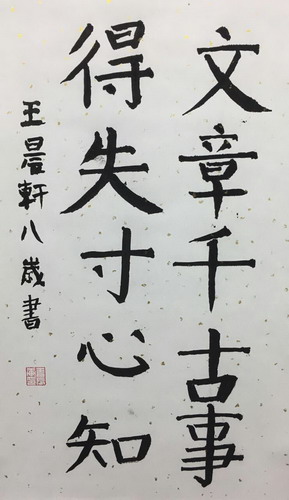 文章千古事
得失寸心知
王晨軒八歲書